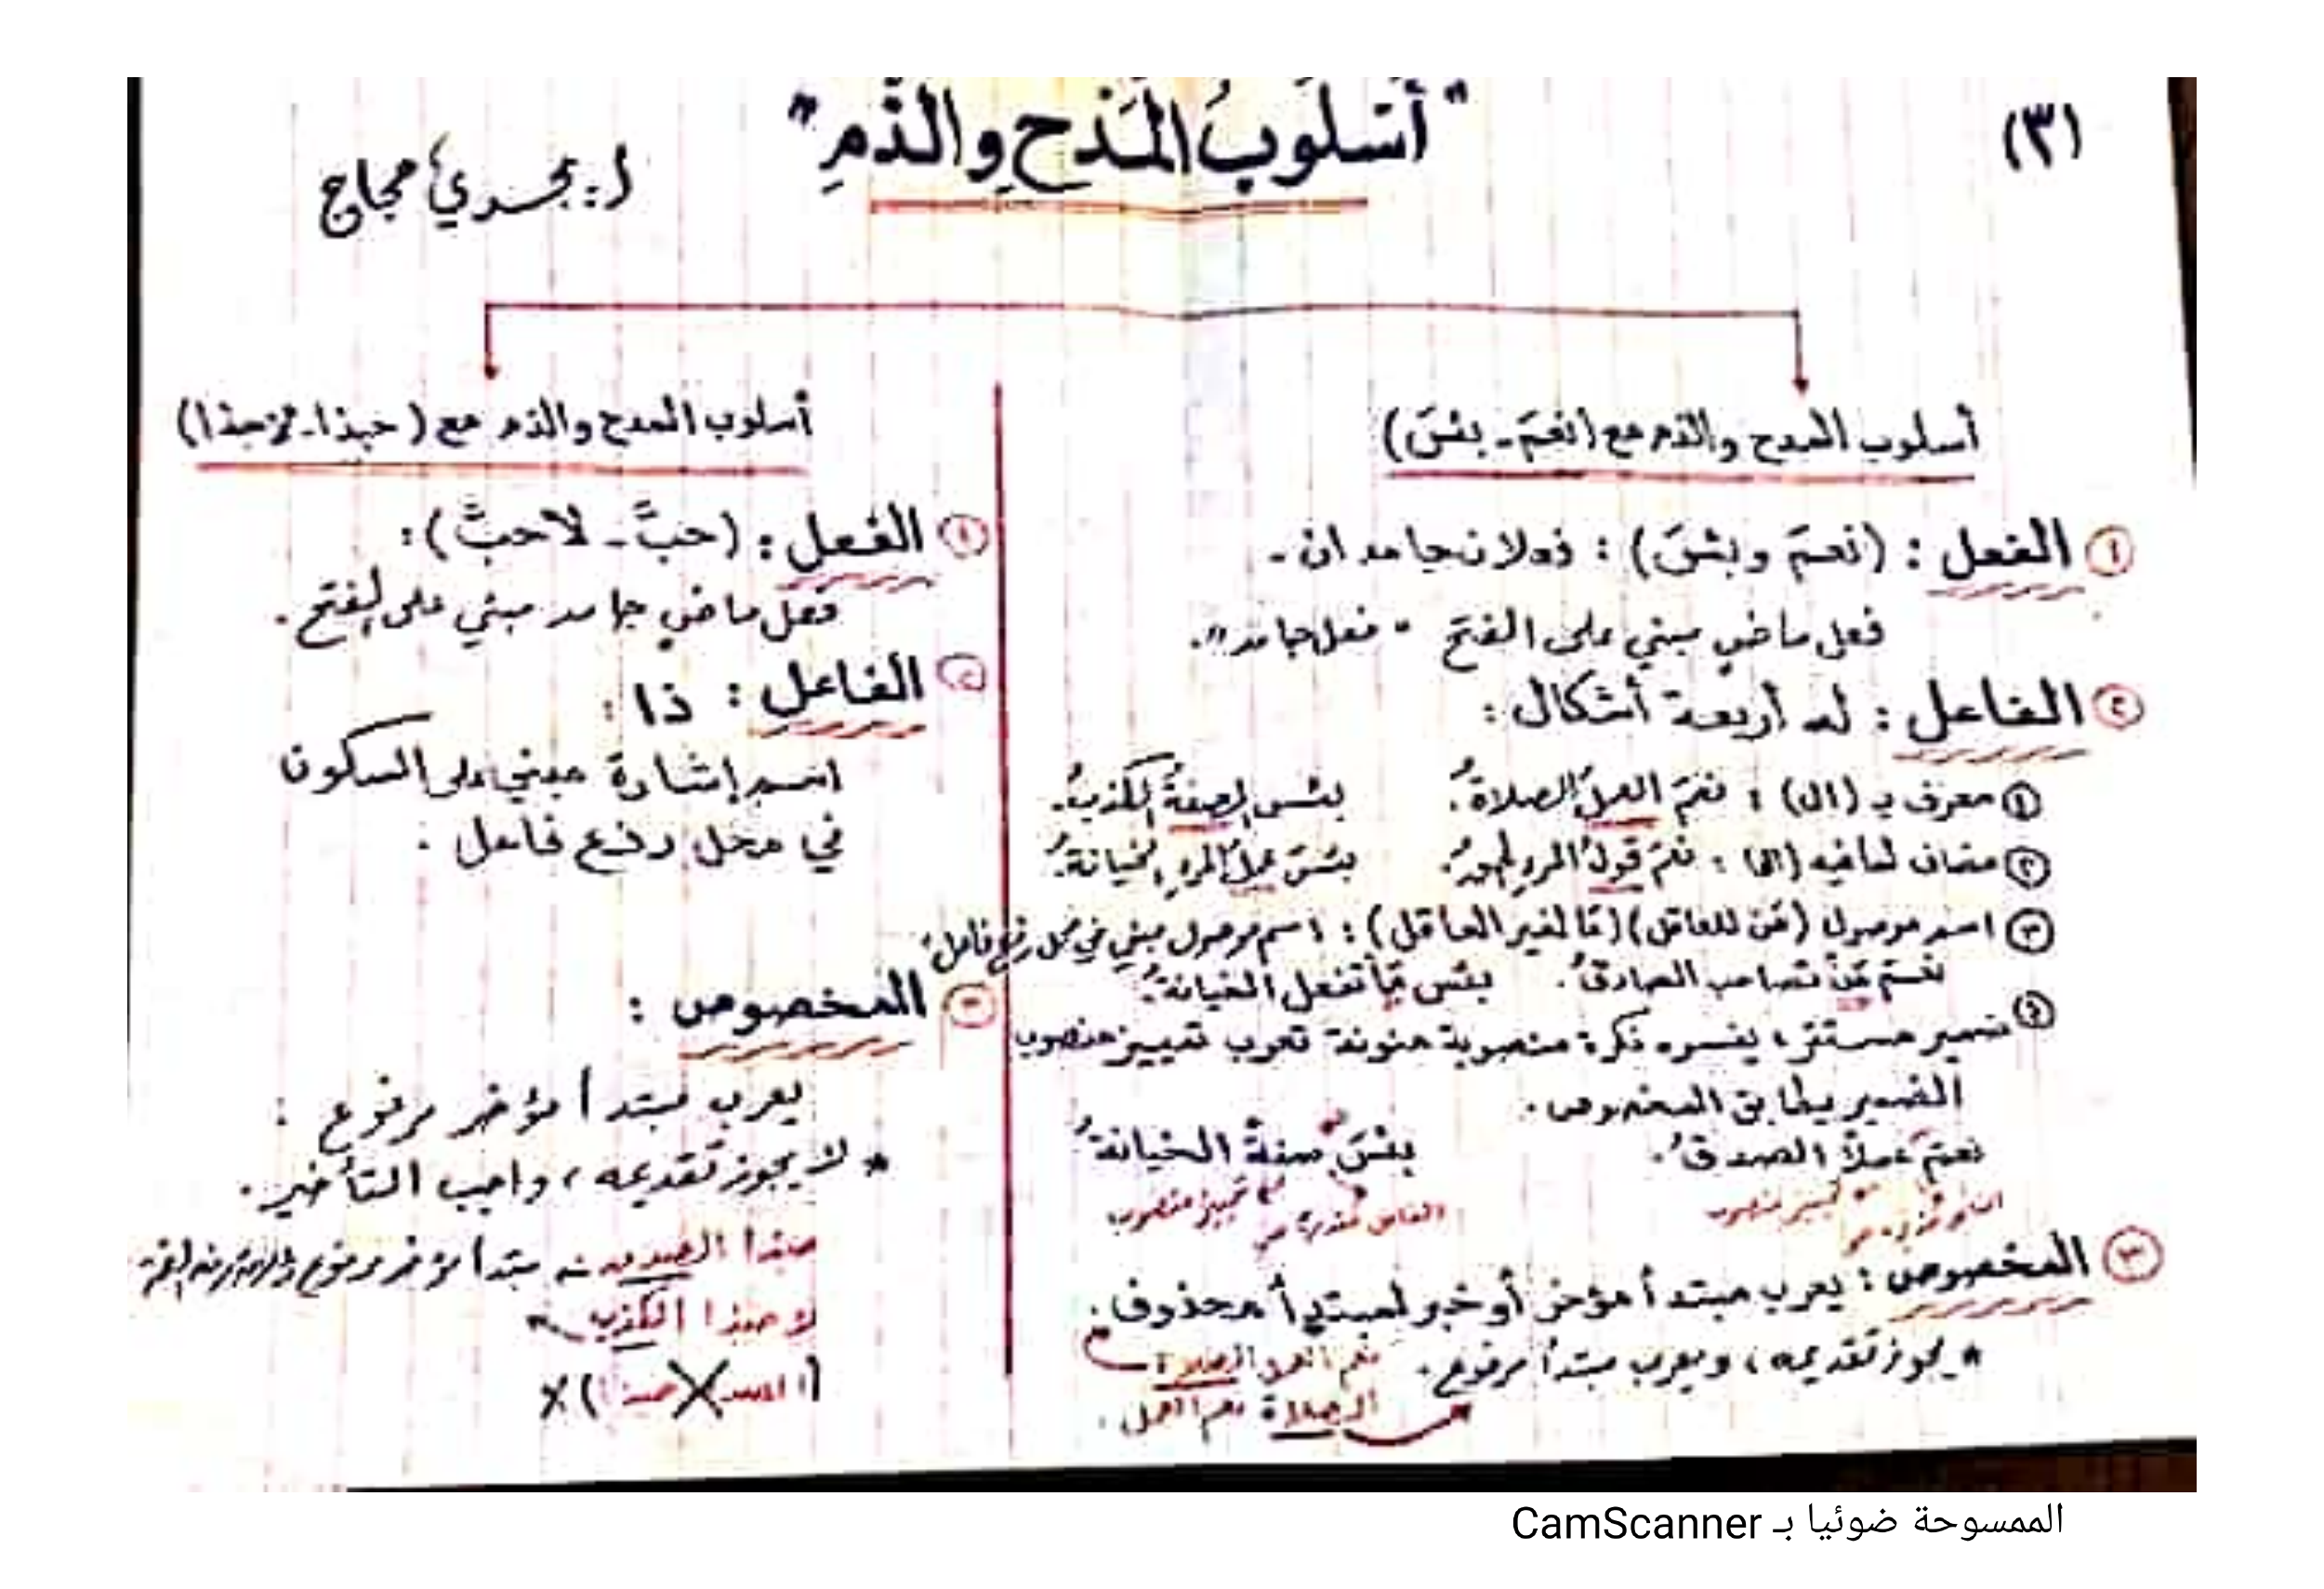 (٣)
"أسلوبُ المَدْحِ والذَّمِ"
أ: مجدي حجاج
أسلوب المدح والذم مع (نِعْمَ - بِئْسَ)
① الفعل: (نعمَ وبئسَ): فعلان جامدان -
فعل ماضٍ مبني على الفتح "فعل جامد".
② الفاعل: له أربعة أشكال:
① معرف بـ (ال): نعمَ العملُ الصلاةُ. بئس الصفةُ الكذبُ.
② مضاف لما فيه (ال): نعمَ قولُ المرءِ بئسَ عملُ المرءِ الخيانةُ.
③ اسم موصول (مَن للعاقل) (مَا لغير العاقل): اسم موصول مبني في محل رفع فاعل.
نعم مَنْ تصاحب الصادقُ. بئس مَا تفعل الخيانةُ.
④ ضمير مستتر، يفسره نكرة منصوبة منونة تعرب تمييز منصوب
الضمير يطابق المخصوص.
نعمَ عملاً الصدقُ. بئسَ صفةً الخيانةُ
تمييز منصوب الفاعل تمييز منصوب
③ المخصوص: يعرب مبتدأ مؤخر أو خبر لمبتدأ محذوف.
* يجوز تقديمه، ويعرب مبتدأ مرفوع. نعم العمل الصلاة
الصلاة نعم العمل.
أسلوب المدح والذم مع (حبذا - لا حبذا)
① الفعل: (حبَّ - لا حبَّ):
فعل ماضٍ جامد مبني على الفتح.
② الفاعل: ذا:
اسم إشارة مبني على السكون
في محل رفع فاعل.
③ المخصوص:
يعرب مبتدأ مؤخر مرفوع.
* لا يجوز تقديمه، واجب التأخير.
حبذا الصدق مبتدأ مؤخر مرفوع
لا حبذا الكذب
الممسوحة ضوئيا بـ CamScanner